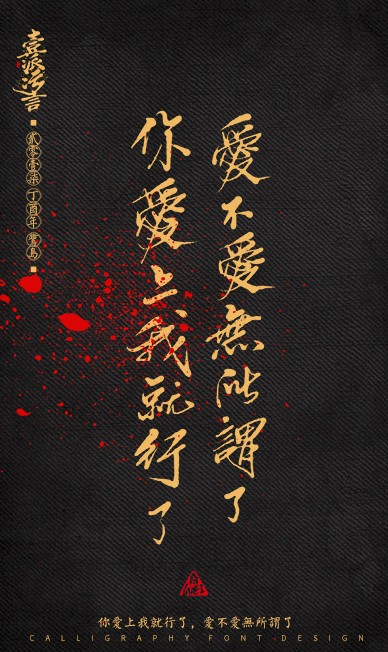 愛不愛無所謂了
你愛上我就行了
壹派污言
貳零壹柒 丁酉年
你愛上我就行了，愛不愛無所謂了
CALLIGRAPHY FONT DESIGN